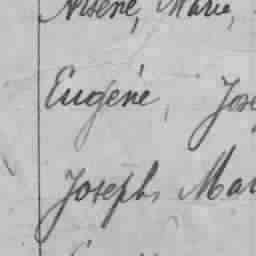 Arsène, Marie,
Eugène, Jose
Joseph, Mar